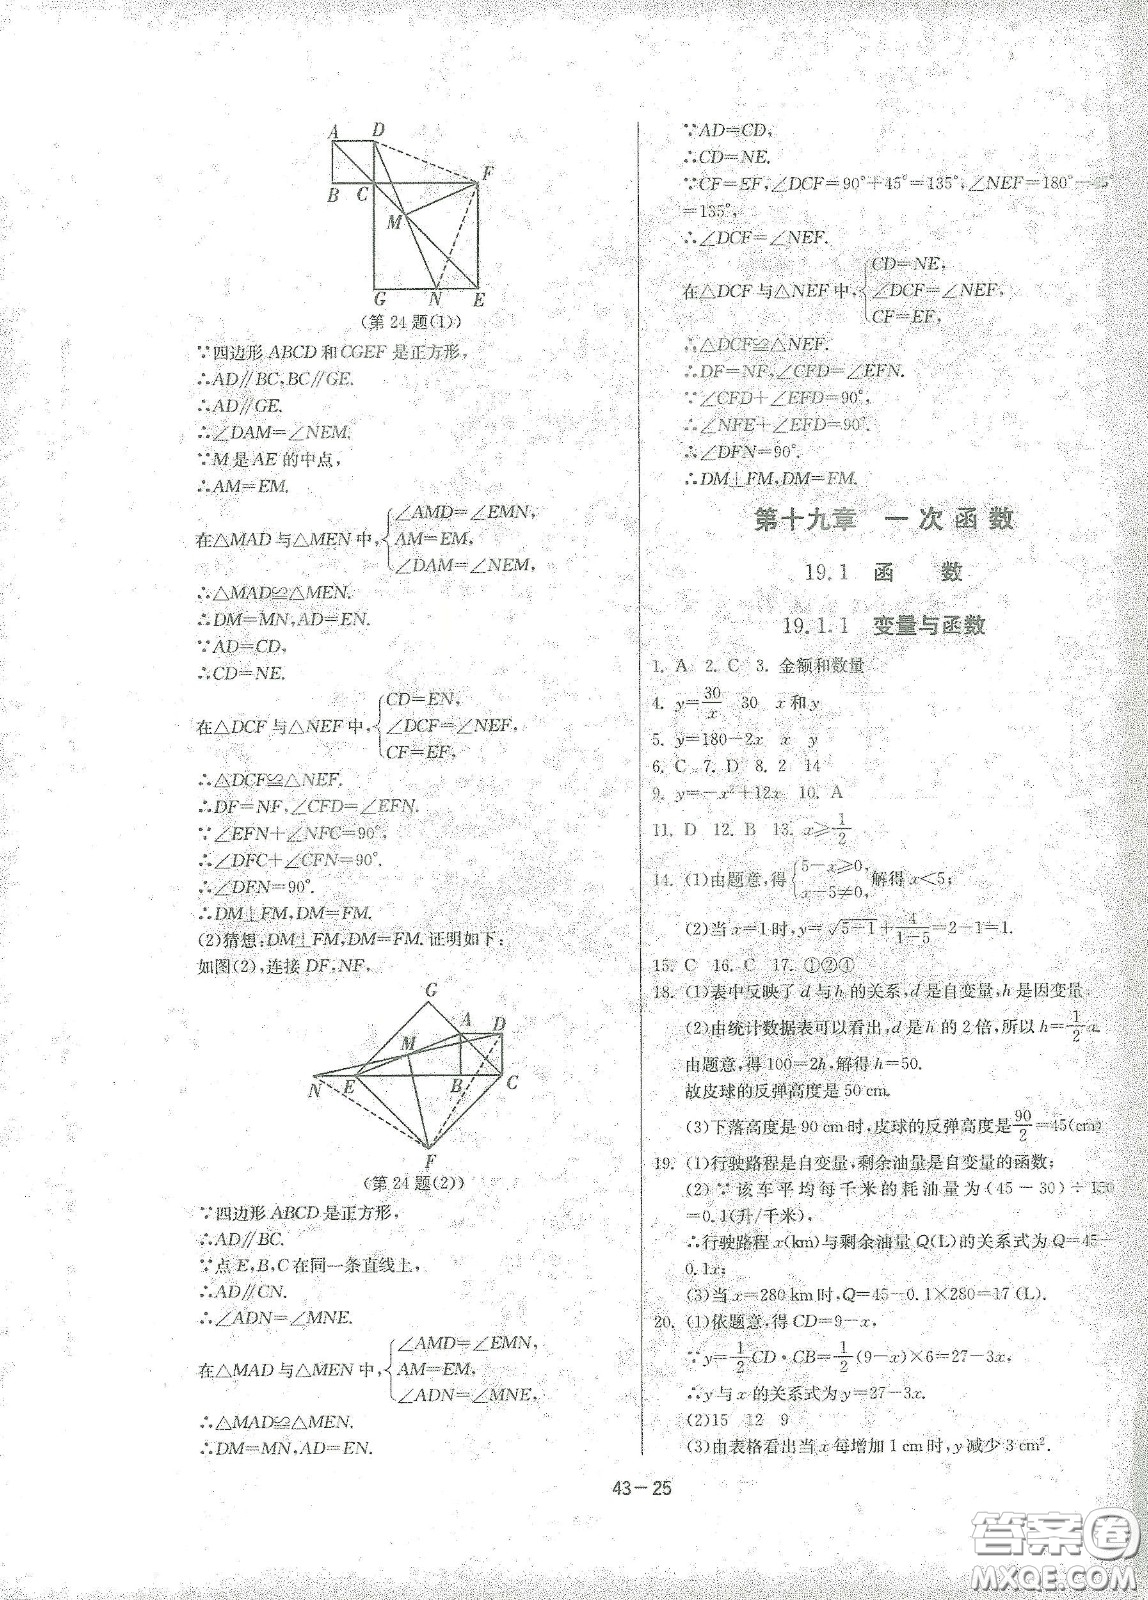 A D
F
B C
M
G N E
(第24题(1))
∵四边形ABCD和CGEF是正方形,
∴AD∥BC,BC∥GE.
∴AD∥GE.
∴∠DAM=∠NEM.
∵M是AE的中点,
∴AM=EM.
在△MAD与△MEN中,{∠AMD=∠EMN,
AM=EM,
∠DAM=∠NEM,
∴△MAD≌△MEN.
∴DM=MN,AD=EN.
∵AD=CD,
∴CD=NE.
在△DCF与△NEF中,{CD=EN,
∠DCF=∠NEF,
CF=EF,
∴△DCF≌△NEF.
∴DF=NF,∠CFD=∠EFN.
∵∠EFN+∠NFC=90°,
∴∠DFC+∠CFN=90°.
∴∠DFN=90°.
∴DM⊥FM,DM=FM.
(2)猜想:DM⊥FM,DM=FM.证明如下:
如图(2),连接DF,NF,
G
A D
M
N E B C
F
(第24题(2))
∵四边形ABCD是正方形,
∴AD∥BC.
∵点E,B,C在同一条直线上,
∴AD∥CN.
∴∠ADN=∠MNE.
在△MAD与△MEN中,{∠AMD=∠EMN,
AM=EM,
∠ADN=∠MNE,
∴△MAD≌△MEN.
∴DM=MN,AD=EN.
∵AD=CD,
∴CD=NE.
∵CF=EF,∠DCF=90°+45°=135°,∠NEF=180°-45°
=135°,
∴∠DCF=∠NEF.
在△DCF与△NEF中,{CD=NE,
∠DCF=∠NEF,
CF=EF,
∴△DCF≌△NEF.
∴DF=NF,∠CFD=∠EFN.
∵∠CFD+∠EFD=90°,
∴∠NFE+∠EFD=90°.
∴∠DFN=90°.
∴DM⊥FM,DM=EM.
第十九章 一次函数
19.1 函 数
19.1.1 变量与函数
1. A 2. C 3. 金额和数量
4. y=30/x 30 x和y
5. y=180-2x x y
6. C 7. D 8. 2 14
9. y=-x²+12x 10. A
11. D 12. B 13. x≥1/2
14. (1)由题意,得{5-x≥0, x-5≠0,解得x<5;
(2)当x=1时,y=√(5-1)+4/(1-5)=2-1=1.
15. C 16. C 17. ①②①
18. (1)表中反映了d与h的关系,d是自变量,h是因变量.
(2)由统计数据表可以看出,d是h的2倍,所以h=1/2x.
由题意,得100=2h,解得h=50.
故皮球的反弹高度是50 cm.
(3)下落高度是90 cm时,皮球的反弹高度是90/2=45(cm)
19. (1)行驶路程是自变量,剩余油量是自变量的函数;
(2)∵该车平均每千米的耗油量为(45-30)÷150
=0.1(升/千米),
∴行驶路程x(km)与剩余油量Q(L)的关系式为Q=45-
0.1x;
(3)当x=280 km时,Q=45-0.1×280=17(L).
20. (1)依题意,得CD=9-x,
∵y=1/2CD·CB=1/2(9-x)×6=27-3x,
∴y与x的关系式为y=27-3x.
(2)15 12 9
(3)由表格看出当x每增加1 cm时,y减少3 cm².
43-25
答案卷
MXQE.COM